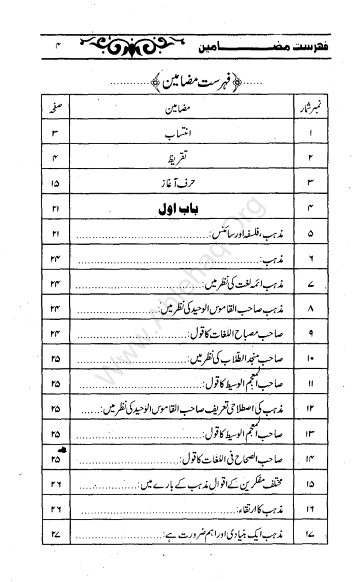 فہرست مضامین ۴
﴿فہرست مضامین﴾
نمبر شمار مضامین صفحہ
۱ انتساب ۳
۲ تقریظ ۴
۳ حرف آغاز ۱۵
۴ باب اول ۲۱
۵ مذہب، فلسفہ اور سائنس: ۲۱
۶ مذہب: ۲۴
۷ مذہب ائمہ لغت کی نظر میں: ۲۴
۸ مذہب صاحب القاموس الوحید کی نظر میں: ۲۴
۹ صاحب مصباح اللغات کا قول: ۲۴
۱۰ صاحب منجد الطلاب کی نظر میں: ۲۵
۱۱ صاحب المعجم الوسیط کا قول: ۲۵
۱۲ مذہب کی اصطلاحی تعریف صاحب القاموس الوحید کی نظر میں: ۲۵
۱۳ صاحب المعجم الوسیط کا قول: ۲۵
۱۴ صاحب الصحاح فی اللغات کا قول: ۲۵
۱۵ مختلف مفکرین کے اقوال مذہب کے بارے میں: ۲۶
۱۶ مذہب کا ارتقاء: ۲۶
۱۷ مذہب ایک بنیادی اور اہم ضرورت ہے: ۲۷
www.Ahlehaq.org